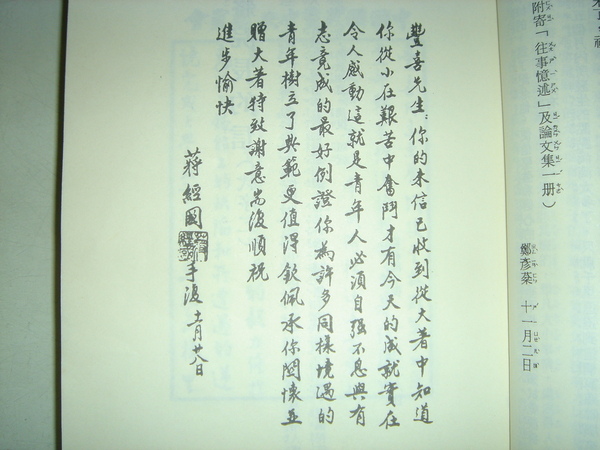 附寄「往事憶述」及論文集一册）
鄭彥棻 十一月二日
豐喜先生：你的来信已收到從大著中知道
你從小在艱苦中奮鬥才有今天的成就實在
令人感動這就是青年人必須自强不息與有
志竟成的最好例證你為許多同樣境遇的
青年樹立了典範更值得欽佩承你關懷並
贈大著特致謝意耑復順祝
進步愉快
蔣經國 手復 十一月廿八日